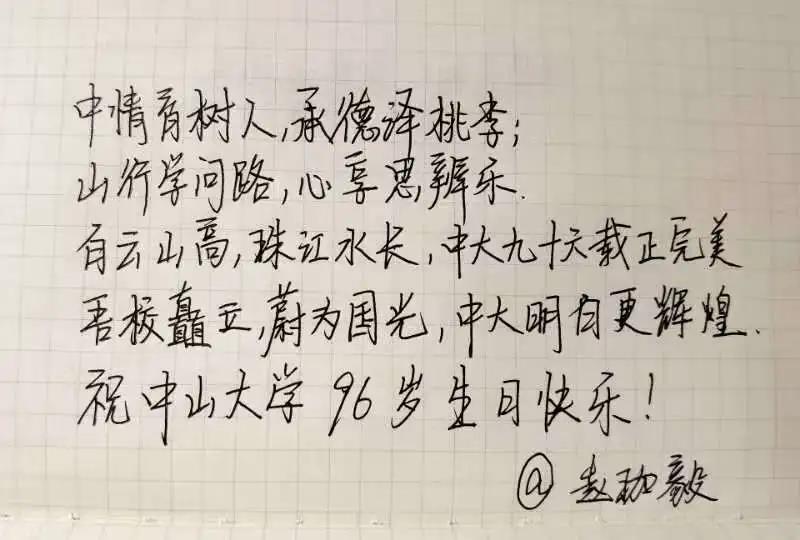 中情育树人,承德泽桃李;
山行学问路,心享思辨乐.
白云山高,珠江水长,中大九十六载正完美
吾校矗立,蔚为国光,中大明白更辉煌.
祝中山大学96岁生日快乐!
@赵珈毅